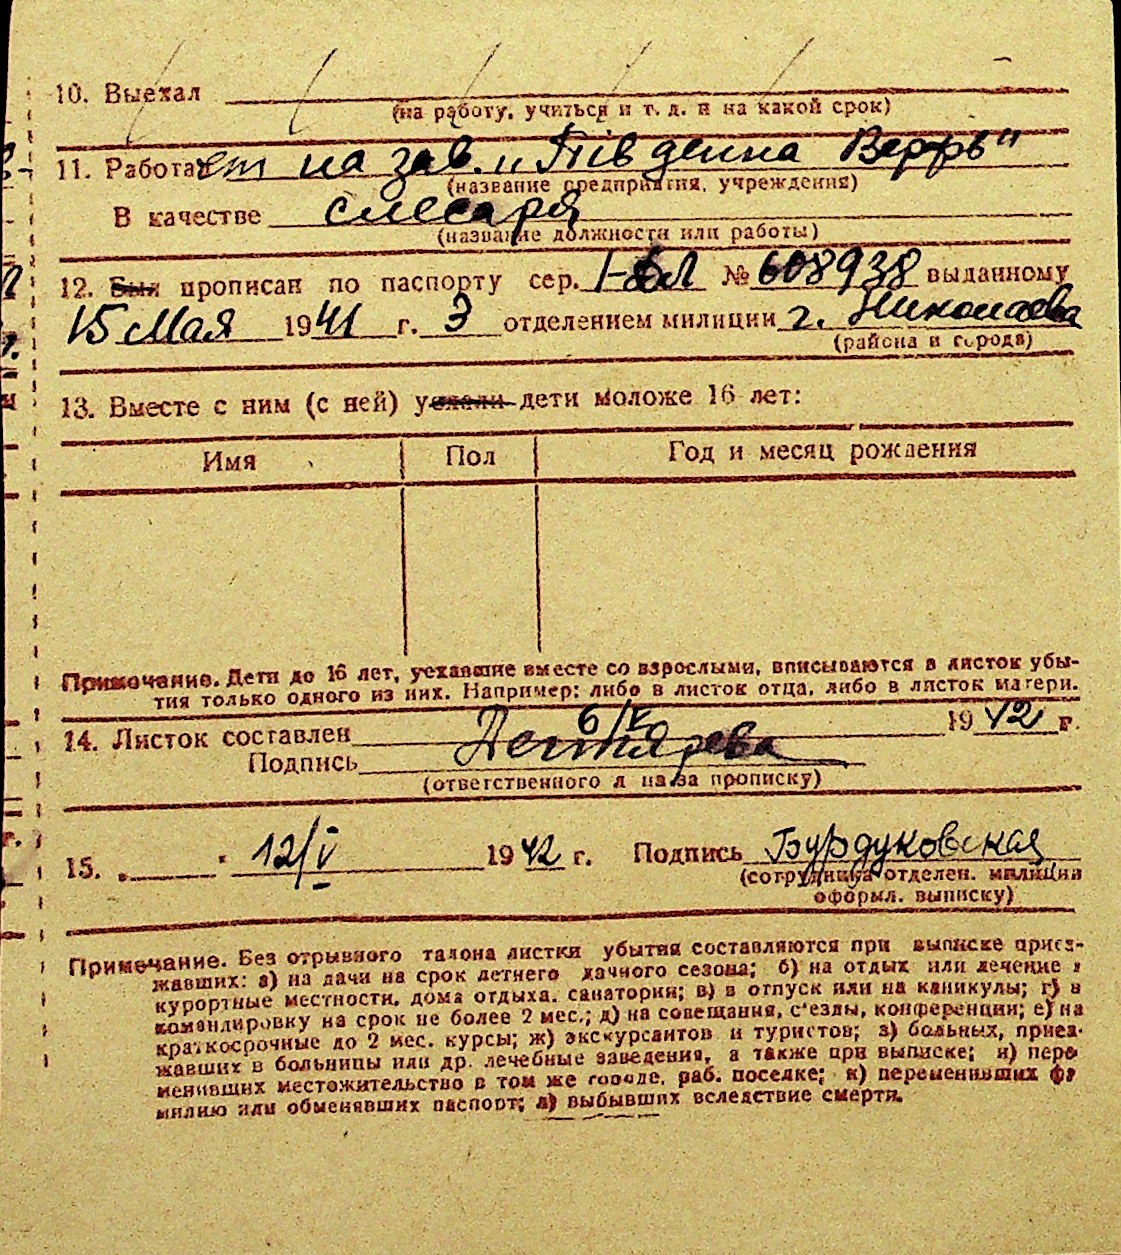 10. Выехал
(на работу, учиться и т. д. и на какой срок)
11. Работает на зав. „Південна Верфь"
(название предприятия, учреждения)
В качестве слесаря
(название должности или работы)
12. Был прописан по паспорту сер. № 608938 выданному
15 Мая 1941 г. 3 отделением милиции г. Николаева
(района и города)
13. Вместе с ним (с ней) уехали дети моложе 16 лет:
Имя Пол Год и месяц рождения
Примечание. Дети до 16 лет, уехавшие вместе со взрослыми, вписываются в листок убы-
тия только одного из них. Например: либо в листок отца, либо в листок матери.
14. Листок составлен 6/V 1942 г.
Подпись Дегтярева
(ответственного л на за прописку)
15. 12/V 1942 г. Подпись Бурдуковская
(сотрудника отделен. милиции
оформл. выписку)
Примечание. Без отрывного талона листки убытия составляются при выписке приез-
жавших: а) на дачи на срок летнего дачного сезона; б) на отдых или лечение в
курортные местности, дома отдыха, санатории; в) в отпуск или на каникулы; г) в
командировку на срок не более 2 мес.; д) на совещания, с'езды, конференции; е) на
краткосрочные до 2 мес. курсы; ж) экскурсантов и туристов; з) больных, приез-
жавших в больницы или др. лечебные заведения, а также при выписке; и) пере
менивших местожительство в том же городе, раб. поселке; к) переменивших фа
милию или обменявших паспорт; л) выбывших вследствие смерти.